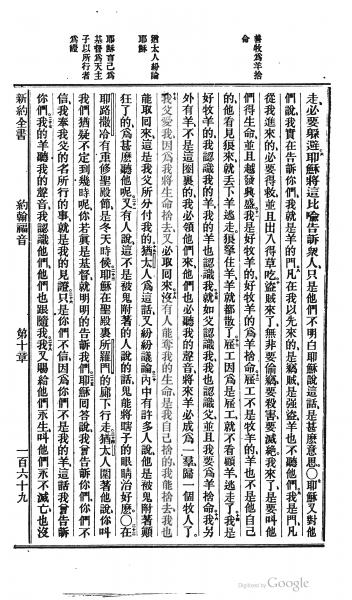 善牧為羊捨
命
猶太人紛論
耶穌
耶穌言己為
基督為天主
子以所行者
為證
走必要躲避耶穌將這比喻告訴衆人只是他們不明白耶穌說這話是甚麼意思〇耶穌又對他
們說我實在告訴你們我就是羊的門凡在我以先來的是竊賊是強盜羊也不聽他們我是門凡
從我進來的必要得救並且出入得草吃盜賊來了無非要偷竊要殺害要滅絕我來了是要叫他
們得生命並且越發興盛我是好牧羊的好牧羊的爲羊捨命雇工不是牧羊的羊也不是他自己
的他看見狼來就丟下羊逃走狼拏住羊羊就都散了雇工因爲是雇工就不看顧羊逃走了我是
好牧羊的我認識我的羊我的羊也認識我就如父認識我我也認識父並且我要爲羊捨命我另
外有羊不是這圈裏的我必領他們來他們必聽我的聲音將來羊必成爲一羣歸一個牧人了
我父愛我因爲我將生命捨去又必取回來沒有人能奪我的生命是我自己捨的我能捨去我也
能取回來這是我父所分付我的猶太人爲這話又紛紛議論內中有許多人說他是被鬼附著顚
狂了的爲甚麼聽他呢又有人說這不是被鬼附著的人說的話鬼能將瞎子的眼睛治好麼〇在
耶路撒冷有重修聖殿節是冬天時候耶穌在聖殿裏所羅門的廊下行走猶太人圍著他說你叫
我們猜疑不定到幾時呢你若眞是基督就明明的告訴我們耶穌回答說我曾告訴你們你們不
信我奉我父的名所行的事就是我的見證只是你們不信因爲你們不是我的羊這話我曾告訴
你們我的羊聽我的聲音我認識他們他們也跟隨我我又賜給他們永生叫他們永不滅亡也沒
新約全書 約翰福音 第十章 一百六十九
Digitized by Google